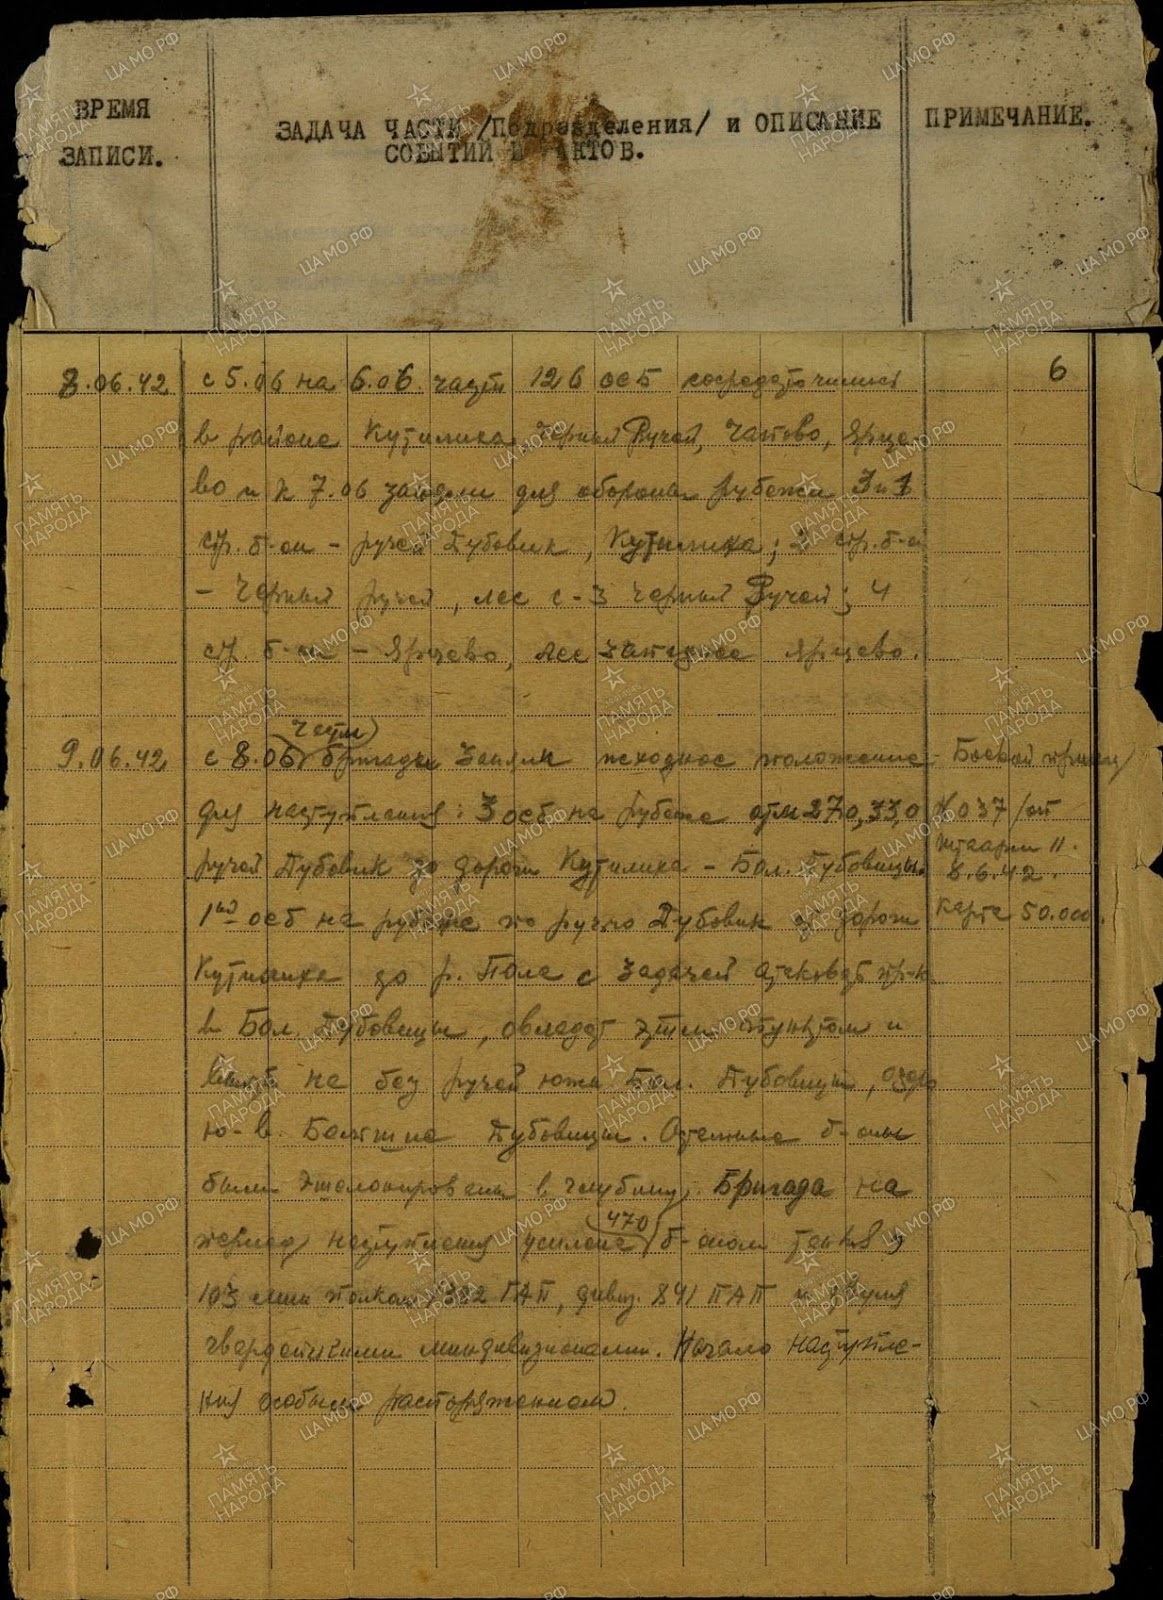 ВРЕМЯ
ЗАПИСИ.
ЗАДАЧА ЧАСТИ /Подразделения/ и ОПИСАНИЕ
СОБЫТИЙ И ФАКТОВ.
ПРИМЕЧАНИЕ.
6
8.06.42 с 5.06 на 6.06. части 126 осб сосредоточились
в районе Кутилиха, Черный Ручей, Чапово, Ярце
во и к 7.06 заняли для обороны рубежи 3 и 1
стр. б-он – ручей Дубовик, Кутилиха; 2 стр. б-н
– Черный ручей, лес с-з Черный Ручей; 4
стр. б-он – Ярцево, лес западнее Ярцево.
части
9.06.42 с 8.06 бригады заняли исходное положение
для наступления: 3 осб на рубеже отм 27,0, 33,0
ручей Дубовик до дороги Кутилиха – Бол. Дубовицы.
1ый осб на рубеже по ручью Дубовик от дороги
Кутилиха до р. Пола с задачей атаковать пр-ка
в Бол. Дубовицы, овладеть этим пунктом и
выйти на без ручей южн. Бол. Дубовицы,
ю-в. Большие Дубовицы. Остальные б-оны
были эшелонированы в глубину. Бригада на
470
период наступления усилена б-оном танков и
103 мин полком, 382 ГАП, дивиз. 841 ПАП и двумя
гвардейскими миндивизионами. Начало наступле-
ния особым распоряжением.
Боевой приказ
№ 037/оп
штаарм 11.
8.6.42.
карта 50.000.